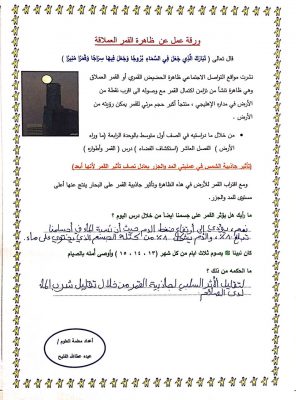 ورقة عمل عن ظاهرة القمر العملاقة
قال تعالى ( تَبَارَكَ الَّذِي جَعَلَ فِي السَّمَاءِ بُرُوجًا وَجَعَلَ فِيهَا سِرَاجًا وَقَمَرًا مُنِيرًا )
نشرت مواقع التواصل الاجتماعي ظاهرة الحضيض القمري أو القمر العملاق
وهي ظاهرة تنشأ من تزامن اكتمال القمر مع وصوله الى اقرب نقطة من
الأرض في مداره الإهليجي ، منتجاً أكبر حجم مرئي للقمر يمكن رؤيته من
الأرض .
من خلال ما دراستيه في الصف أول متوسط بالوحدة الرابعة (ما وراء
الأرض) الفصل العاشر (استكشاف الفضاء ) درس ( القمر وأطواره )
(تأثير جاذبية الشمس في عمليتي المد والجزر يعادل نصف تأثير القمر لأنها أبعد)
ومع اقتراب القمر للأرض في هذه الظاهرة وتأثير جاذبية القمر على البحار ينتج عنها أعلى
مستوى للمد والجزر .
ما رأيك هل يؤثر القمر على جسمنا ايضا من خلال درس اليوم ؟
نعم، يؤدي إلى ارتفاع ضغط الدم حيث أن نسبة الماء في أجسامنا
تبلغ ٨٠٪ والدم يشكل ٨٪ من كتلة الجسم الذي يحتوي على ماء.
كان نبينا ﷺ يصوم ثلاث ايام من كل شهر ( ١٣ ، ١٤ ، ١٥ ) وأوصى أمته بالصيام
ما الحكمه من ذلك ؟
لتقليل الأثر السلبي لجاذبية القمر من خلال تقليل شرب الماء
لدى الصائم
أعداد معلمة العلوم /
عيده عطالله الفليح